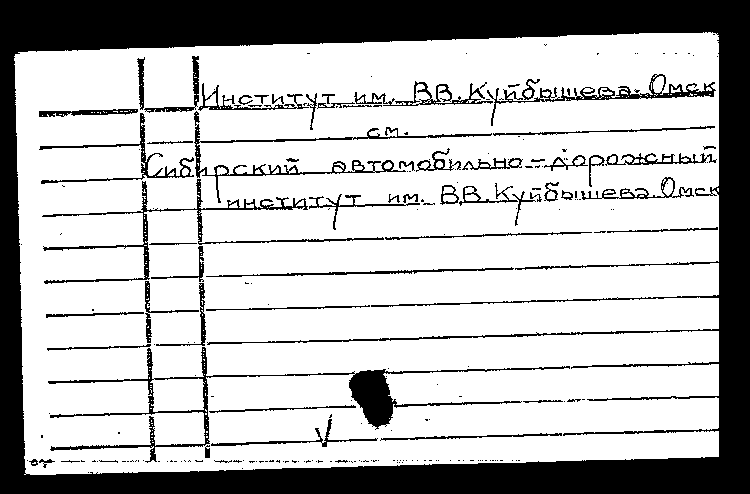 Институт им. В.В. Куйбышева. Омск
см.
Сибирский автомобильно-дорожный
институт им. В.В. Куйбышева. Омск
V